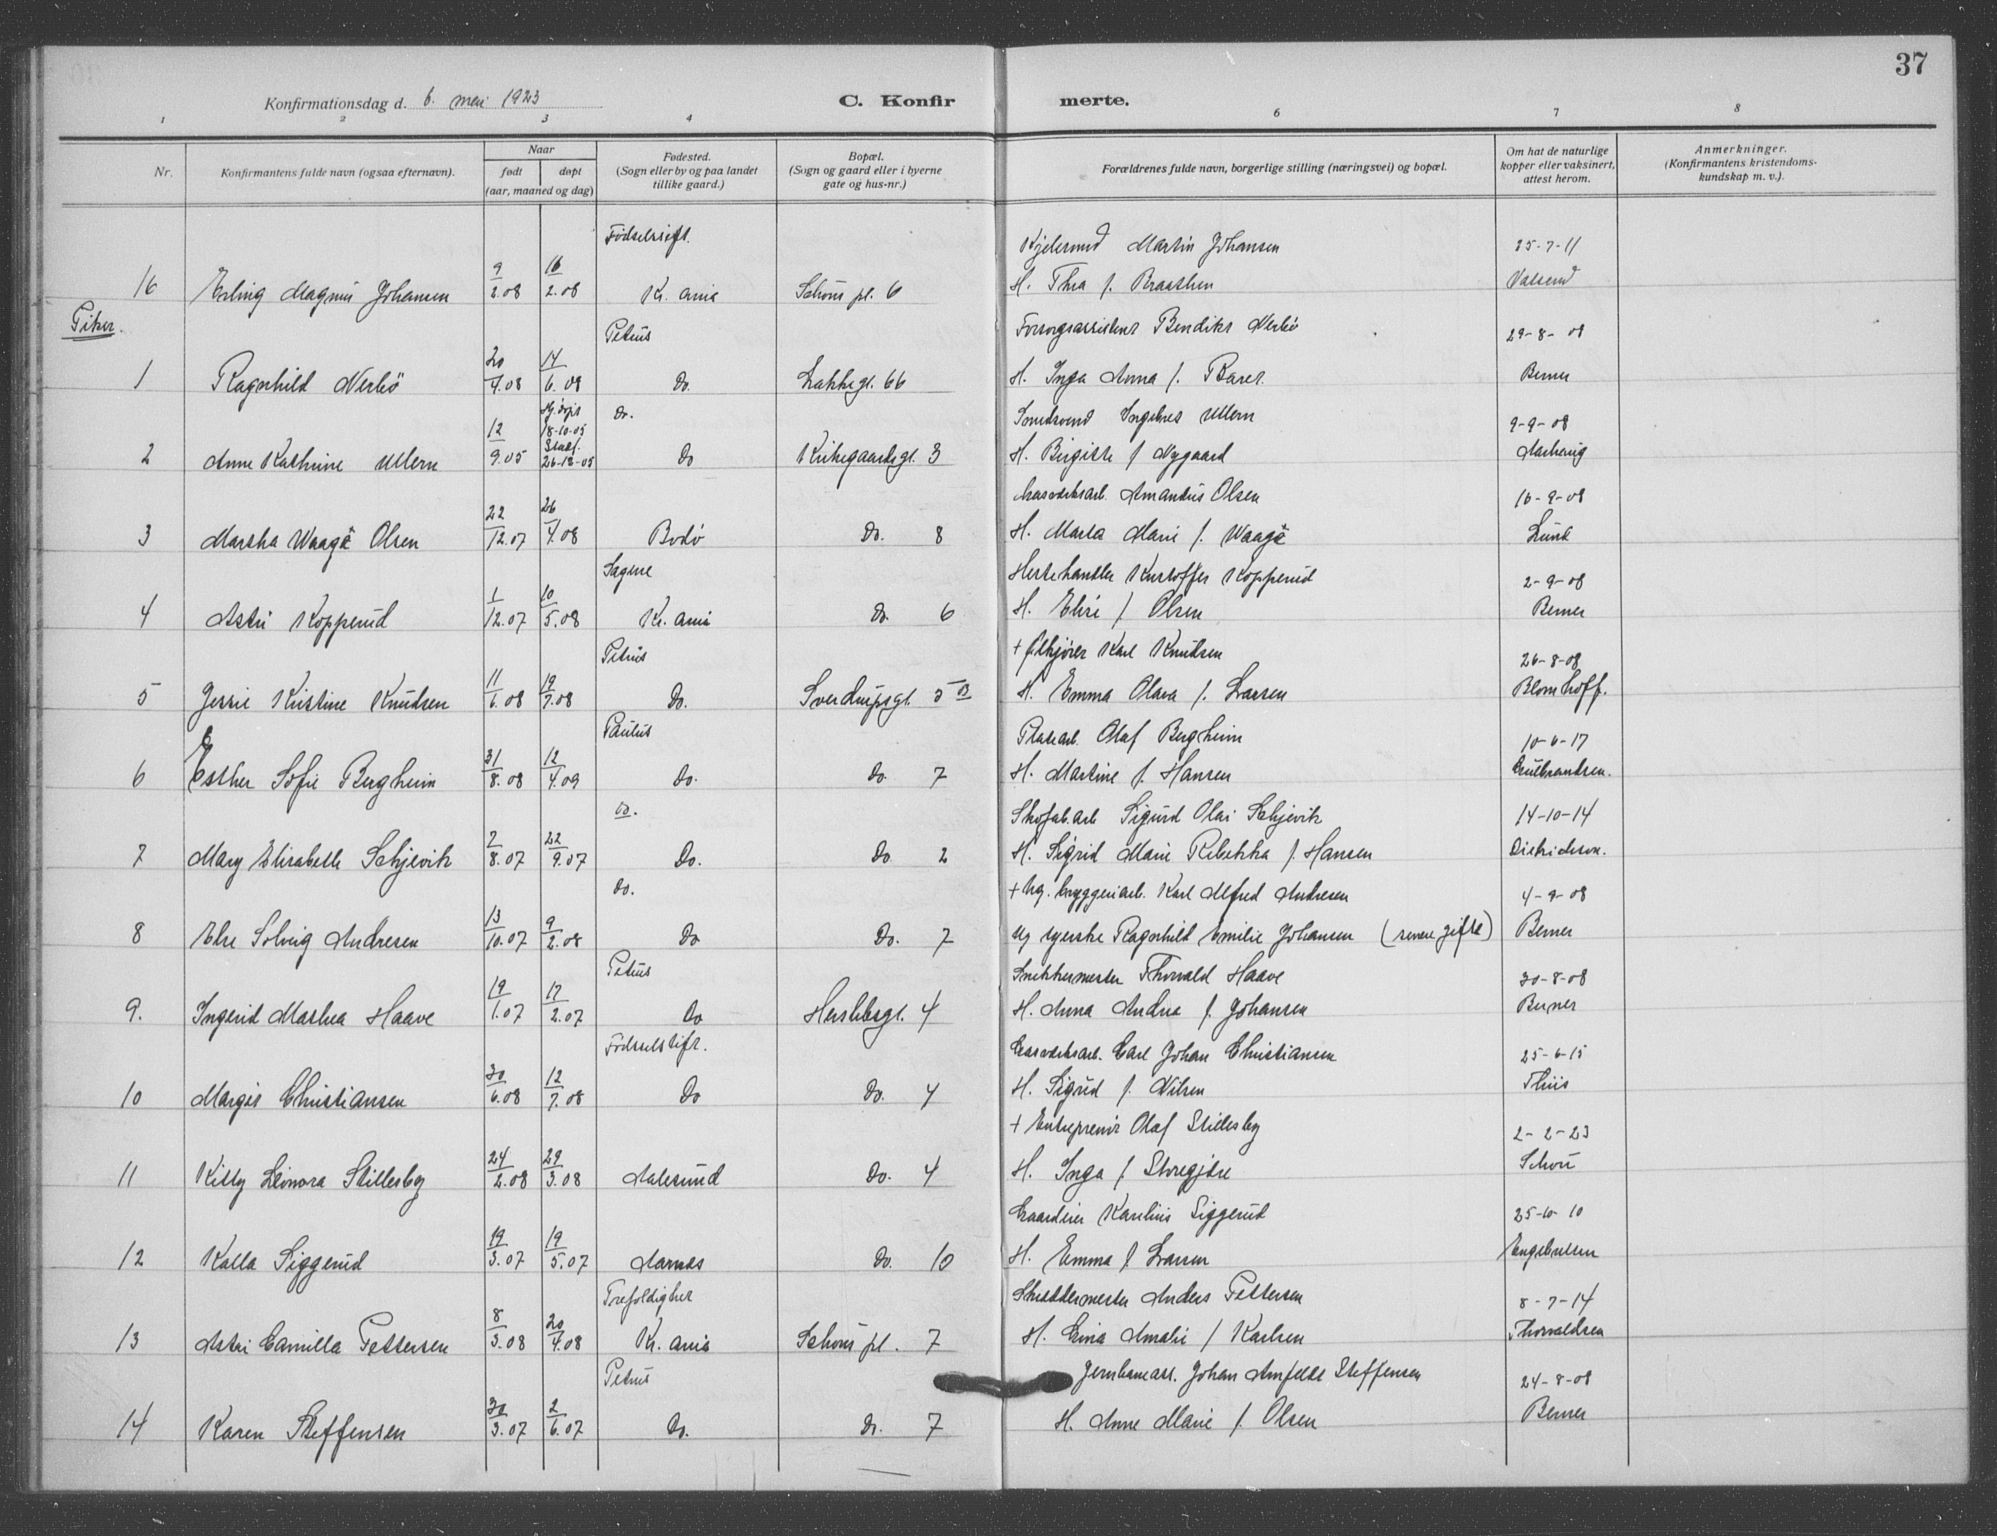 37
Konfirmationsdag d. 6. mai 1923
C. Konfirmerte.
1 2 3 4 5 6 7 8
Nr.
Konfirmantens fulde navn (ogsaa efternavn).
Naar
født døpt
(aar, maaned og dag)
Fødested.
(Sogn eller by og paa landet
tillike gaard.)
Bopæl.
(Sogn og gaard eller i byerne
gate og hus-nr.)
Forældrenes fulde navn, borgerlige stilling (næringsvei) og bopæl.
Om hat de naturlige
kopper eller vaksinert,
attest herom.
Anmerkninger.
(Konfirmantens kristendoms-
kundskap m. v.).
Fødselsstift. Martin Johansen 25-7-11
16 Erling Magnus Johansen 9/2.08 16/2.08 Kr.ania Schous pl. 6 H. Thea f. Braathen
Piker.
Petrus Bendiks Nerbö 29-8-08
1 Ragnhild Nerbö 20/4.08 14/6.08 Do. Lakkegt. 66 H. Inga Anna f. Berner
Do. Ullern 9-9-08
2 Anne Kathrine Ullern 12/9.05 hj.døpt 18-10-05 Stadf. 26-12-05 Do Kirkegaardsgt. 3 H. Birgitte f Nygaard
Gasverksarb. Amandus Olsen 16-9-08
3 Martha Waagö Olsen 22/12.07 26/4.08 Bodö Do. 8 H. Marta Marie f. Waagö Lund
Sagene Hestehandler Kristoffer Kopperud 2-9-08
4 Astri Kopperud 1/12.07 10/5.08 Kr.ania Do. 6 H. Elise f Olsen Berner
Petrus + Ølkjører Karl Knudsen 26-8-08
5 Jessie Kristine Knudsen 11/6.08 19/7.08 Do. Sverdrupsgt. 5 B H. Emma Olava f. Larsen Blomhoff.
Paulus Platearb. Olaf Bergheim 10-6-17
6 Esther Sofie Bergheim 31/8.08 12/4.09 Do. Do. 7 H. Martine f. Hansen Gulbrandsen.
Do. Skofab.arb Sigurd Olai Schjevik 14-10-14
7 Mary Elisabeth Schjevik 2/8.07 22/9.07 Do. Do 2 H. Sigrid Marie Rebekka f. Hansen Didrickson.
Do. + Ug. bryggeriarb. Karl Alfred Andresen 4-9-08
8 Else Solveig Andresen 13/10.07 9/2.08 Do Do. 7 Ug syerske Ragnhild Emilie Johansen (senere gifte) Berner
Petrus Snekkermester Thorvald Haave 20-8-08
9. Ingerid Marthea Haave 19/1.07 17/2.07 Do Herslebsgt. 4 H. Anna Andrea f. Johansen Berner
Födselsstift. Gasverksarb. Carl Johan Christiansen 25-6-15
10 Margit Christiansen 30/6.08 12/7.08 Do Do. 4 H. Sigrid f. Nilsen Thiis
+ Entreprenör Olaf Stillesby 2-2-23
11 Kitty Leonora Stillesby 24/2.08 29/3.08 Aalesund Do. 4 H. Inga f Schou
Gaardeier Karelius Siggerud 25-10 10
12 Kalla Siggerud 19/3.07 19/5.07 Aarnes Do. 10 H. Emma f Larsen Engebretsen
Trefoldighet Skreddermester Anders Pettersen 8-7-14
13 Astri Camilla Pettersen 8/3.08 20/4.08 Kr.ania Schous pl. 7 H. Amalie f Karlsen Thorvaldsen
Petrus Jernbaneass. Johan Amfeldt Steffensen 24-8-08
14 Karen Steffensen 30/3.07 2/6.07 Do. Do. 7 H. Anne Marie f. Olsen Berner